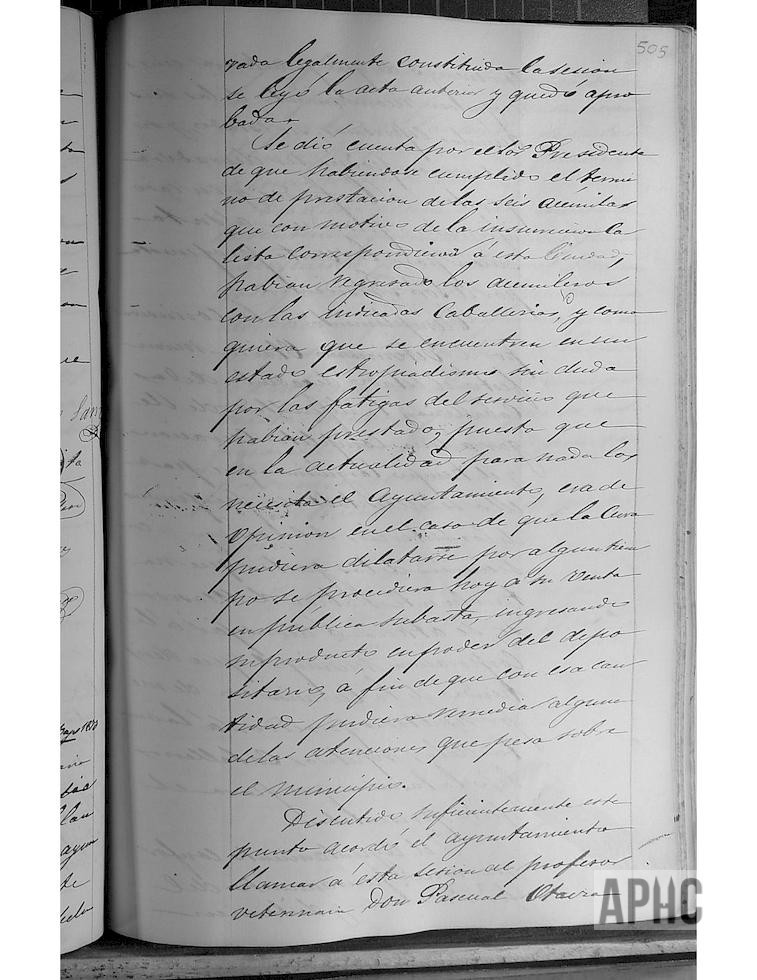 505
rada legalmente constituida la sesion
se leyó la acta anterior y quedó apro
bada.
Se dió cuenta por el Sor Presidente
de que habiendose cumplido el termi
no de prestacion de las seis acemilas
que con motivo de la insurreccion Ca
lista correspondieron á esta Ciudad,
habian regresado los acemileros
con las indicadas Caballerias, y como
quiera que se encuentren en un
estado estropiadisimo sin duda
por las fatigas del servicio que
habian prestado, puesto que
en la actualidad para nada las
necesita el Ayuntamiento, era de
opinion en el caso de que la Cura
pudiera dilatarse por algun tiem
po se procediera hoy á su Venta
en pública subasta, ingresando
su producto en poder del depo
sitario, á fin de que con esa can
tidad pudiera remediar alguna
de las atenciones que pesa sobre
el municipio.
Discutido suficientemente este
punto acordó el ayuntamiento
llamar á esta sesion al profesor
veterinario Don Pascual
APHC